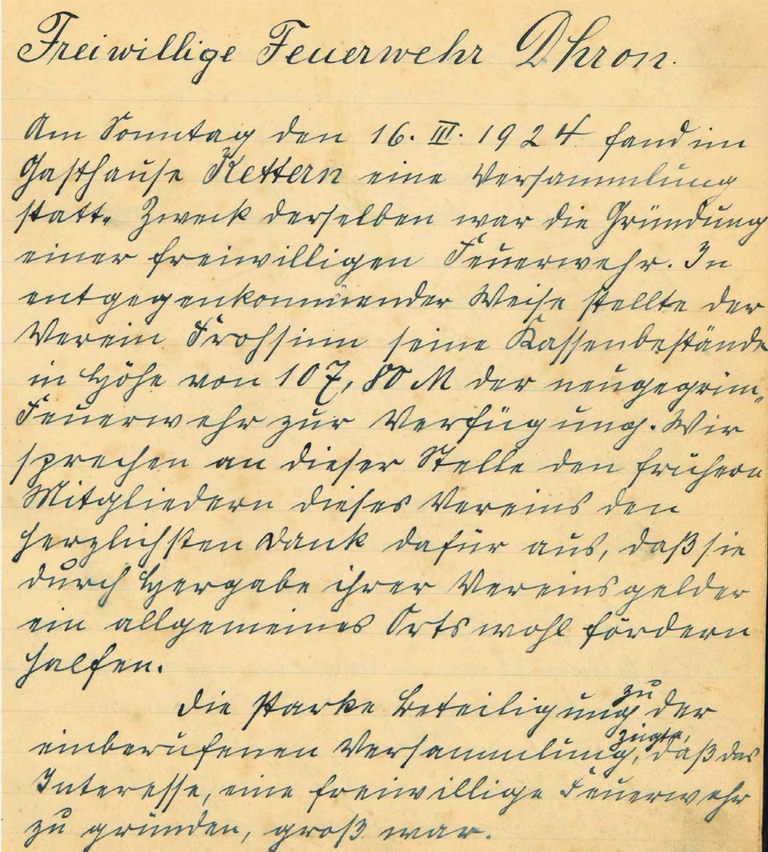 Freiwillige Feuerwehr Dhron.
Am Sonntag den 16. III. 1924 fand im
Gasthause Kettern eine Versammlung
statt. Zweck derselben war die Gründung
einer freiwilligen Feuerwehr. In
entgegenkommender Weise stellte der
Verein Frohsinn seine Kassenbestände
in Höhe von 107,80 M der neugegrün-
Feuerwehr zur Verfügung. Wir
sprechen an dieser Stelle den frühern
Mitgliedern dieses Vereins den
herzlichsten Dank dafür aus, daß sie
durch Hergabe ihrer Vereinsgelder
ein allgemeines Ortswohl fördern
halfen.
Die starke Beteiligung zu der
einberufenen Versammlung zeigte, daß das
Interesse, eine freiwillige Feuerwehr
zu gründen, groß war.